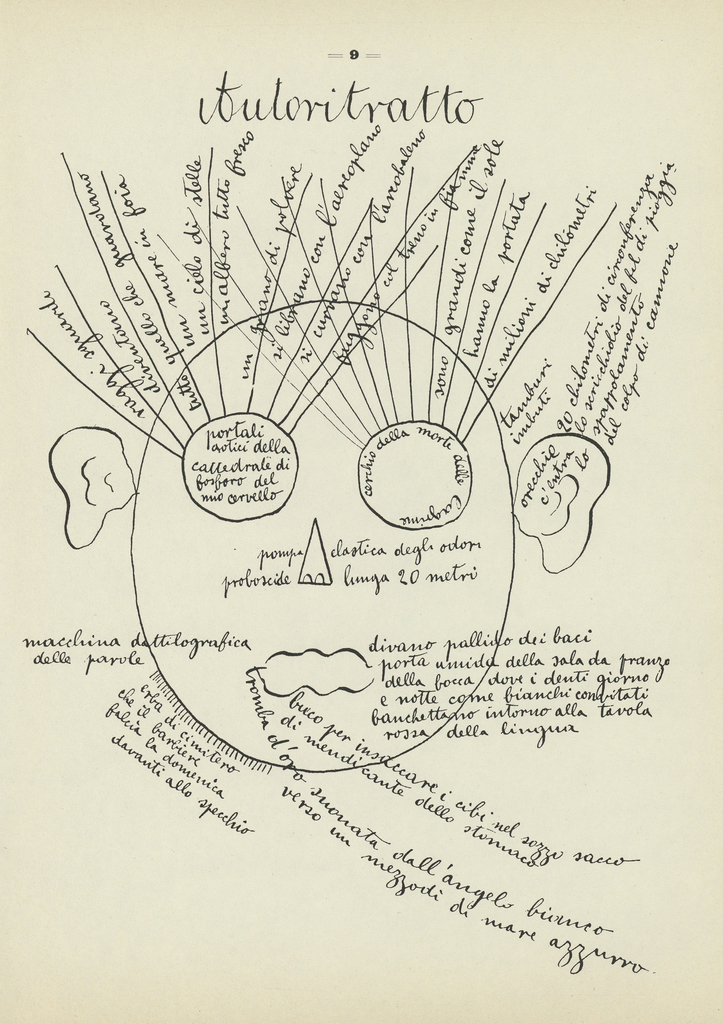 = 9 =
Autoritratto
raggi sguardi
diventano
tutto quello che guardano
un mare in foia
un cielo di stelle
un albero tutto fresco
un grano di polvere
si librano con l'aereoplano
si curvano con l'arcobaleno
fuggono col treno in fiamme
sono grandi come il sole
hanno la portata
di milioni di chilometri
tamburi
imbuti
20 chilometri di circonferenza
lo scricchiolio del fil di pioggia
spappolamento
del colpo di cannone
orecchie
c'entra
lo
portali
aortici della
cattedrale di
fosforo del
mio cervello
cerchio della morte delle lagrime
pompa elastica degli odori
proboscide lunga 20 metri
macchina dattilografica
delle parole
divano pallido dei baci
porta umida della sala da pranzo
della bocca dove i denti giorno
e notte come bianchi convitati
banchettano intorno alla tavola
rossa della lingua
erba di cimitero
che il barbiere
falcia la domenica
davanti allo specchio
buco per insaccare i cibi nel sozzo sacco
di mendicante dello stomaco
tromba d'oro suonata dall'angelo bianco
verso un mezzodì di mare azzurro.